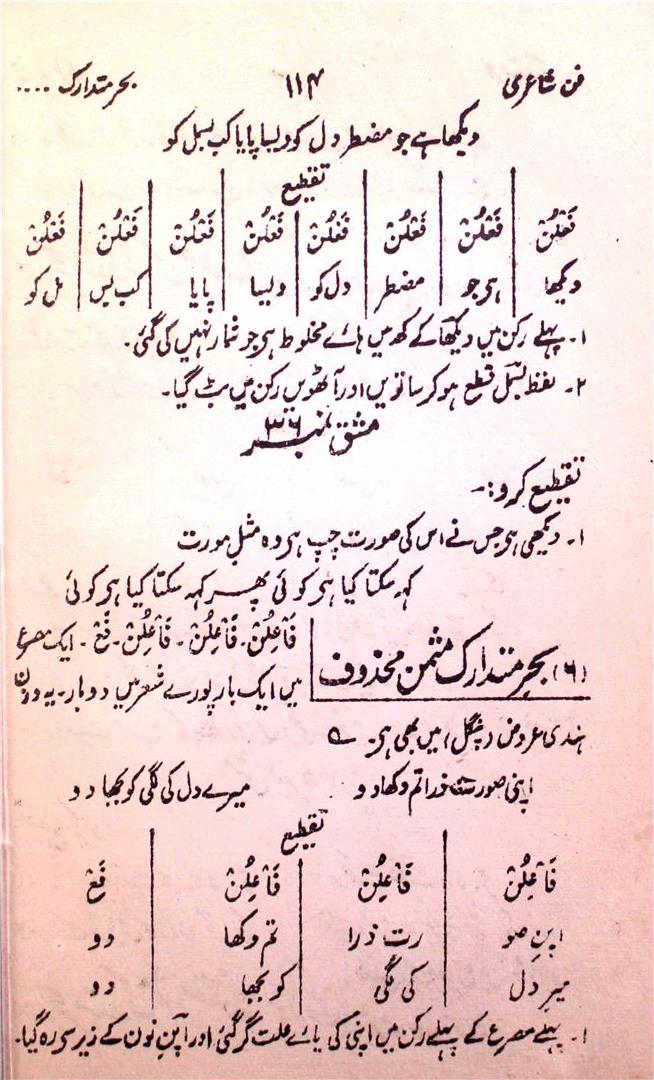 فن شاعری ۱۱۴ بحر متدارک ....
دیکھا ہے جو مضطر دل کو ویسا پایا کب بسمل کو
تقطیع
فَعْلُنْ فَعْلُنْ فَعْلُنْ فَعْلُنْ فَعْلُنْ فَعْلُنْ فَعْلُنْ فَعْلُنْ
دیکھا ہی جو مضطر دل کو ویسا پایا کب بس مل کو
۱۔ پہلے رکن میں دیکھا کے کھ میں ہائے مخلوط ہی جو شمار نہیں کی گئی۔
۲۔ لفظ بسمل قطع ہو کر ساتویں اور آٹھویں رکن میں بٹ گیا۔
مشق نمبر ۳۶
تقطیع کرو:۔
۱۔ دیکھی ہی جس نے اس کی صورت چپ ہی وہ مثلِ مورت
کہہ سکتا کیا ہی کوئی پھر کہہ سکتا کیا ہی کوئی
(۶) بحر متدارک مثمن محذوف
فَاعِلُنْ۔ فَاعِلُنْ۔ فَاعِلُنْ۔ فَعْ۔ ایک مصرع
میں ایک بار پورے شعر میں دوبار۔ یہ وزن
ہندی عروض (پنگل) میں بھی ہی۔ ؎
اپنی صورت ذرا تم دکھا دو میرے دل کی لگی کو بجھا دو
تقطیع
فَاعِلُنْ فَاعِلُنْ فَاعِلُنْ فَعْ
اپنِ صو رت ذرا تم دکھا دو
میرِ دل کی لگی کو بجھا دو
۱۔ پہلے مصرع کے پہلے رکن میں اپنی کی یائے علت گر گئی اور اپنِ نون کے زیر سے رہ گیا۔